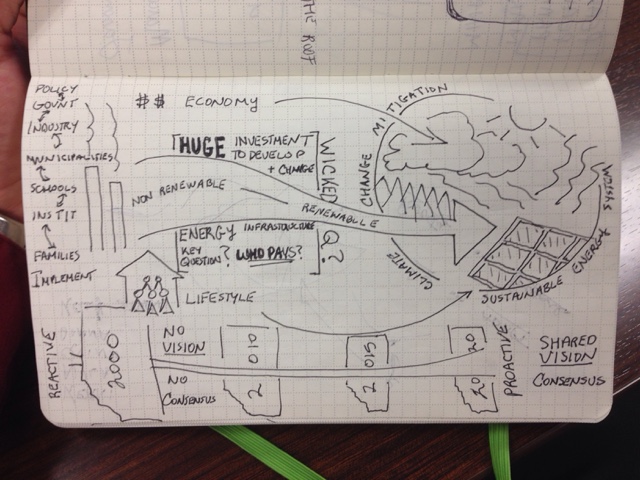 THE ROOF
POLICY
GOVNT
INDUSTRY
MUNICIPALITIES
SCHOOLS
INSTIT
FAMILIES
IMPLEMENT
$$ ECONOMY
HUGE INVESTMENT
TO DEVELOP
+ CHANGE
WICKED
Q?
NON RENEWABLE
RENEWABLE
ENERGY INFRASTRUCTURE
KEY
QUESTION? WHO PAYS?
LIFESTYLE
CLIMATE
CHANGE
MITIGATION
SUSTAINABLE
ENERGY
SYSTEM
REACTIVE
2000
NO
VISION
NO
CONSENSUS
2010
2015
2020
PROACTIVE
SHARED
VISION
CONSENSUS